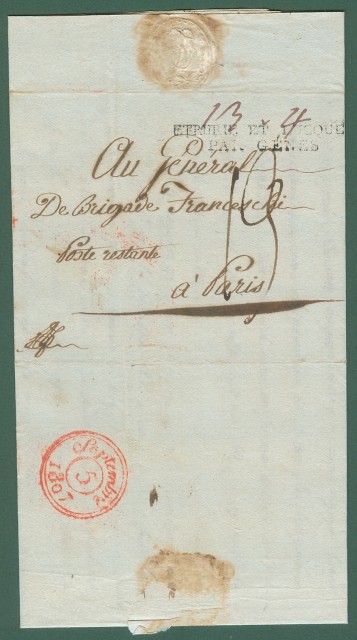 13 4
ETRURIE ET LUCQUES
PAR GENES
Au Général
De Brigade Franceschi
Poste restante
à Paris
Septembre
5
1807